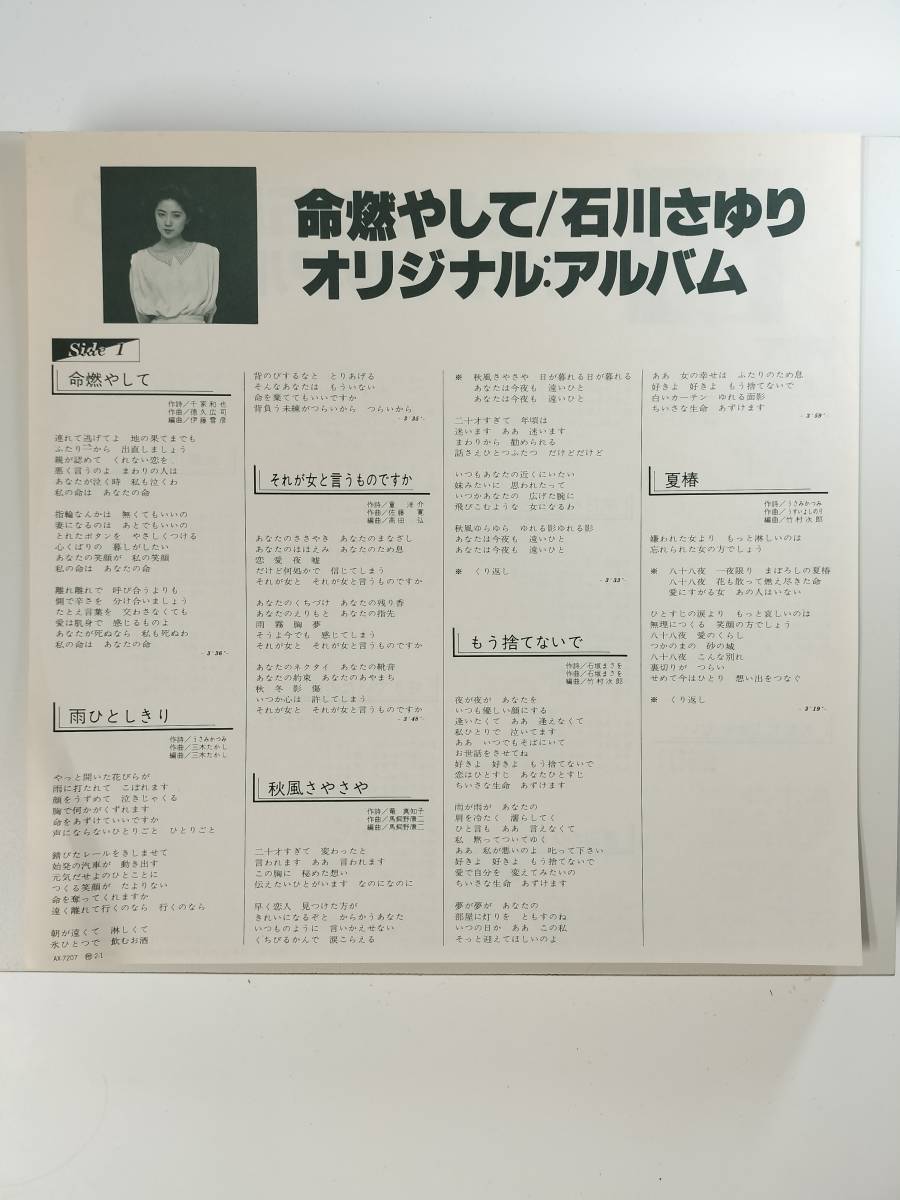 命燃やして/石川さゆり
オリジナル:アルバム
Side 1
命燃やして
作詩/千家和也
作曲/徳久広司
編曲/伊藤雪彦
連れて逃げてよ 地の果てまでも
ふたり一から 出直しましょう
親が認めて くれない恋を
悪く言うのよ まわりの人は
あなたが泣く時 私も泣くわ
私の命は あなたの命
指輪なんかは 無くてもいいの
妻になるのは あとでもいいの
とれたボタンを やさしくつける
心くばりの 暮しがしたい
あなたの笑顔が 私の笑顔
私の命は あなたの命
離れ離れで 呼び合うよりも
側で辛さを 分け合いましょう
たとえ言葉を 交わさなくても
愛は肌身で 感じるものよ
あなたが死ぬなら 私も死ぬわ
私の命は あなたの命
- 3'36"-
雨ひとしきり
作詩/うさみかつみ
作曲/三木たかし
編曲/三木たかし
やっと開いた花びらが
雨に打たれて こぼれます
顔をうずめて 泣きじゃくる
胸で何かがくずれます
命をあずけていいですか
声にならないひとりごと ひとりごと
錆びたレールをきしませて
始発の汽車が 動き出す
元気だせよのひとことに
つくる笑顔が たよりない
命を奪ってくれますか
遠く離れて行くのなら 行くのなら
朝が遠くて 淋しくて
氷ひとつで 飲むお酒
AX-7207 2-1
背のびするなと とりあげる
そんなあなたは もういない
命を棄ててもいいですか
背負う未練がつらいから つらいから
- 3'35"-
それが女と言うものですか
作曲/佐藤 寛
編曲/高田 弘
あなたのささやき あなたのまなざし
あなたのほほえみ あなたのため息
恋 愛 夜 嘘
だけど何処かで 信じてしまう
それが女と それが女と言うものですか
あなたのくちづけ あなたの残り香
あなたのえりもと あなたの指先
雨 霧 胸 夢
そうよ今でも 感じてしまう
それが女と それが女と言うものですか
あなたのネクタイ あなたの靴音
あなたの約束 あなたのあやまち
秋 冬 影 傷
いつか心は 許してしまう
それが女と それが女と言うものですか
- 3'48"-
秋風さやさや
作詩/竜 真知子
作曲/馬飼野康二
編曲/馬飼野康二
二十才すぎて 変わったと
言われます ああ 言われます
この胸に 秘めた想い
伝えたいひとがいます なのになのに
早く恋人 見つけた方が
きれいになるぞと からかうあなた
いつものように 言いかえせない
くちびるかんで 涙こらえる
※ 秋風さやさや 日が暮れる日が暮れる
あなたは今夜も 遠いひと
あなたは今夜も 遠いひと
二十才すぎて 年頃は
迷います ああ 迷います
まわりから 勧められる
話さえひとつふたつ だけどだけど
いつもあなたの近くにいたい
妹みたいに 思われたって
いつかあなたの 広げた腕に
飛びこむような 女になるわ
秋風ゆらゆら ゆれる影ゆれる影
あなたは今夜も 遠いひと
あなたは今夜も 遠いひと
※ くり返し
- 3'33"-
もう捨てないで
作詩/石坂まさを
作曲/石坂まさを
編曲/竹村次郎
夜が夜が あなたを
いつも優しい顔にする
逢いたくて ああ 逢えなくて
私ひとりで 泣いてます
ああ いつでもそばにいて
お世話をさせてね
好きよ 好きよ もう捨てないで
恋はひとすじ あなたひとすじ
ちいさな生命 あずけます
雨が雨が あなたの
肩を冷たく 濡らしてく
ひと言も ああ 言えなくて
私 黙ってついてゆく
ああ 私が悪いのよ 叱って下さい
好きよ 好きよ もう捨てないで
愛で自分を 変えてみたいの
ちいさな生命 あずけます
夢が夢が あなたの
部屋に灯りを ともすのね
いつの日か ああ この私
そっと迎えてほしいのよ
ああ 女の幸せは ふたりのため息
好きよ 好きよ もう捨てないで
白いカーテン ゆれる面影
ちいさな生命 あずけます
- 3'59"-
夏椿
作詩/うさみかつみ
作曲/うすいよしのり
編曲/竹村次郎
嫌われた女より もっと淋しいのは
忘れられた女の方でしょう
※ 八十八夜 一夜限り まぼろしの夏椿
八十八夜 花も散って燃え尽きた命
愛にすがる女 あの人はいない
ひとすじの涙より もっと哀しいのは
無理につくる 笑顔の方でしょう
八十八夜 愛のくらし
つかのまの 砂の城
八十八夜 こんな別れ
裏切りが つらい
せめて今はひとり 想い出をつなぐ
※ くり返し
- 3'19"-